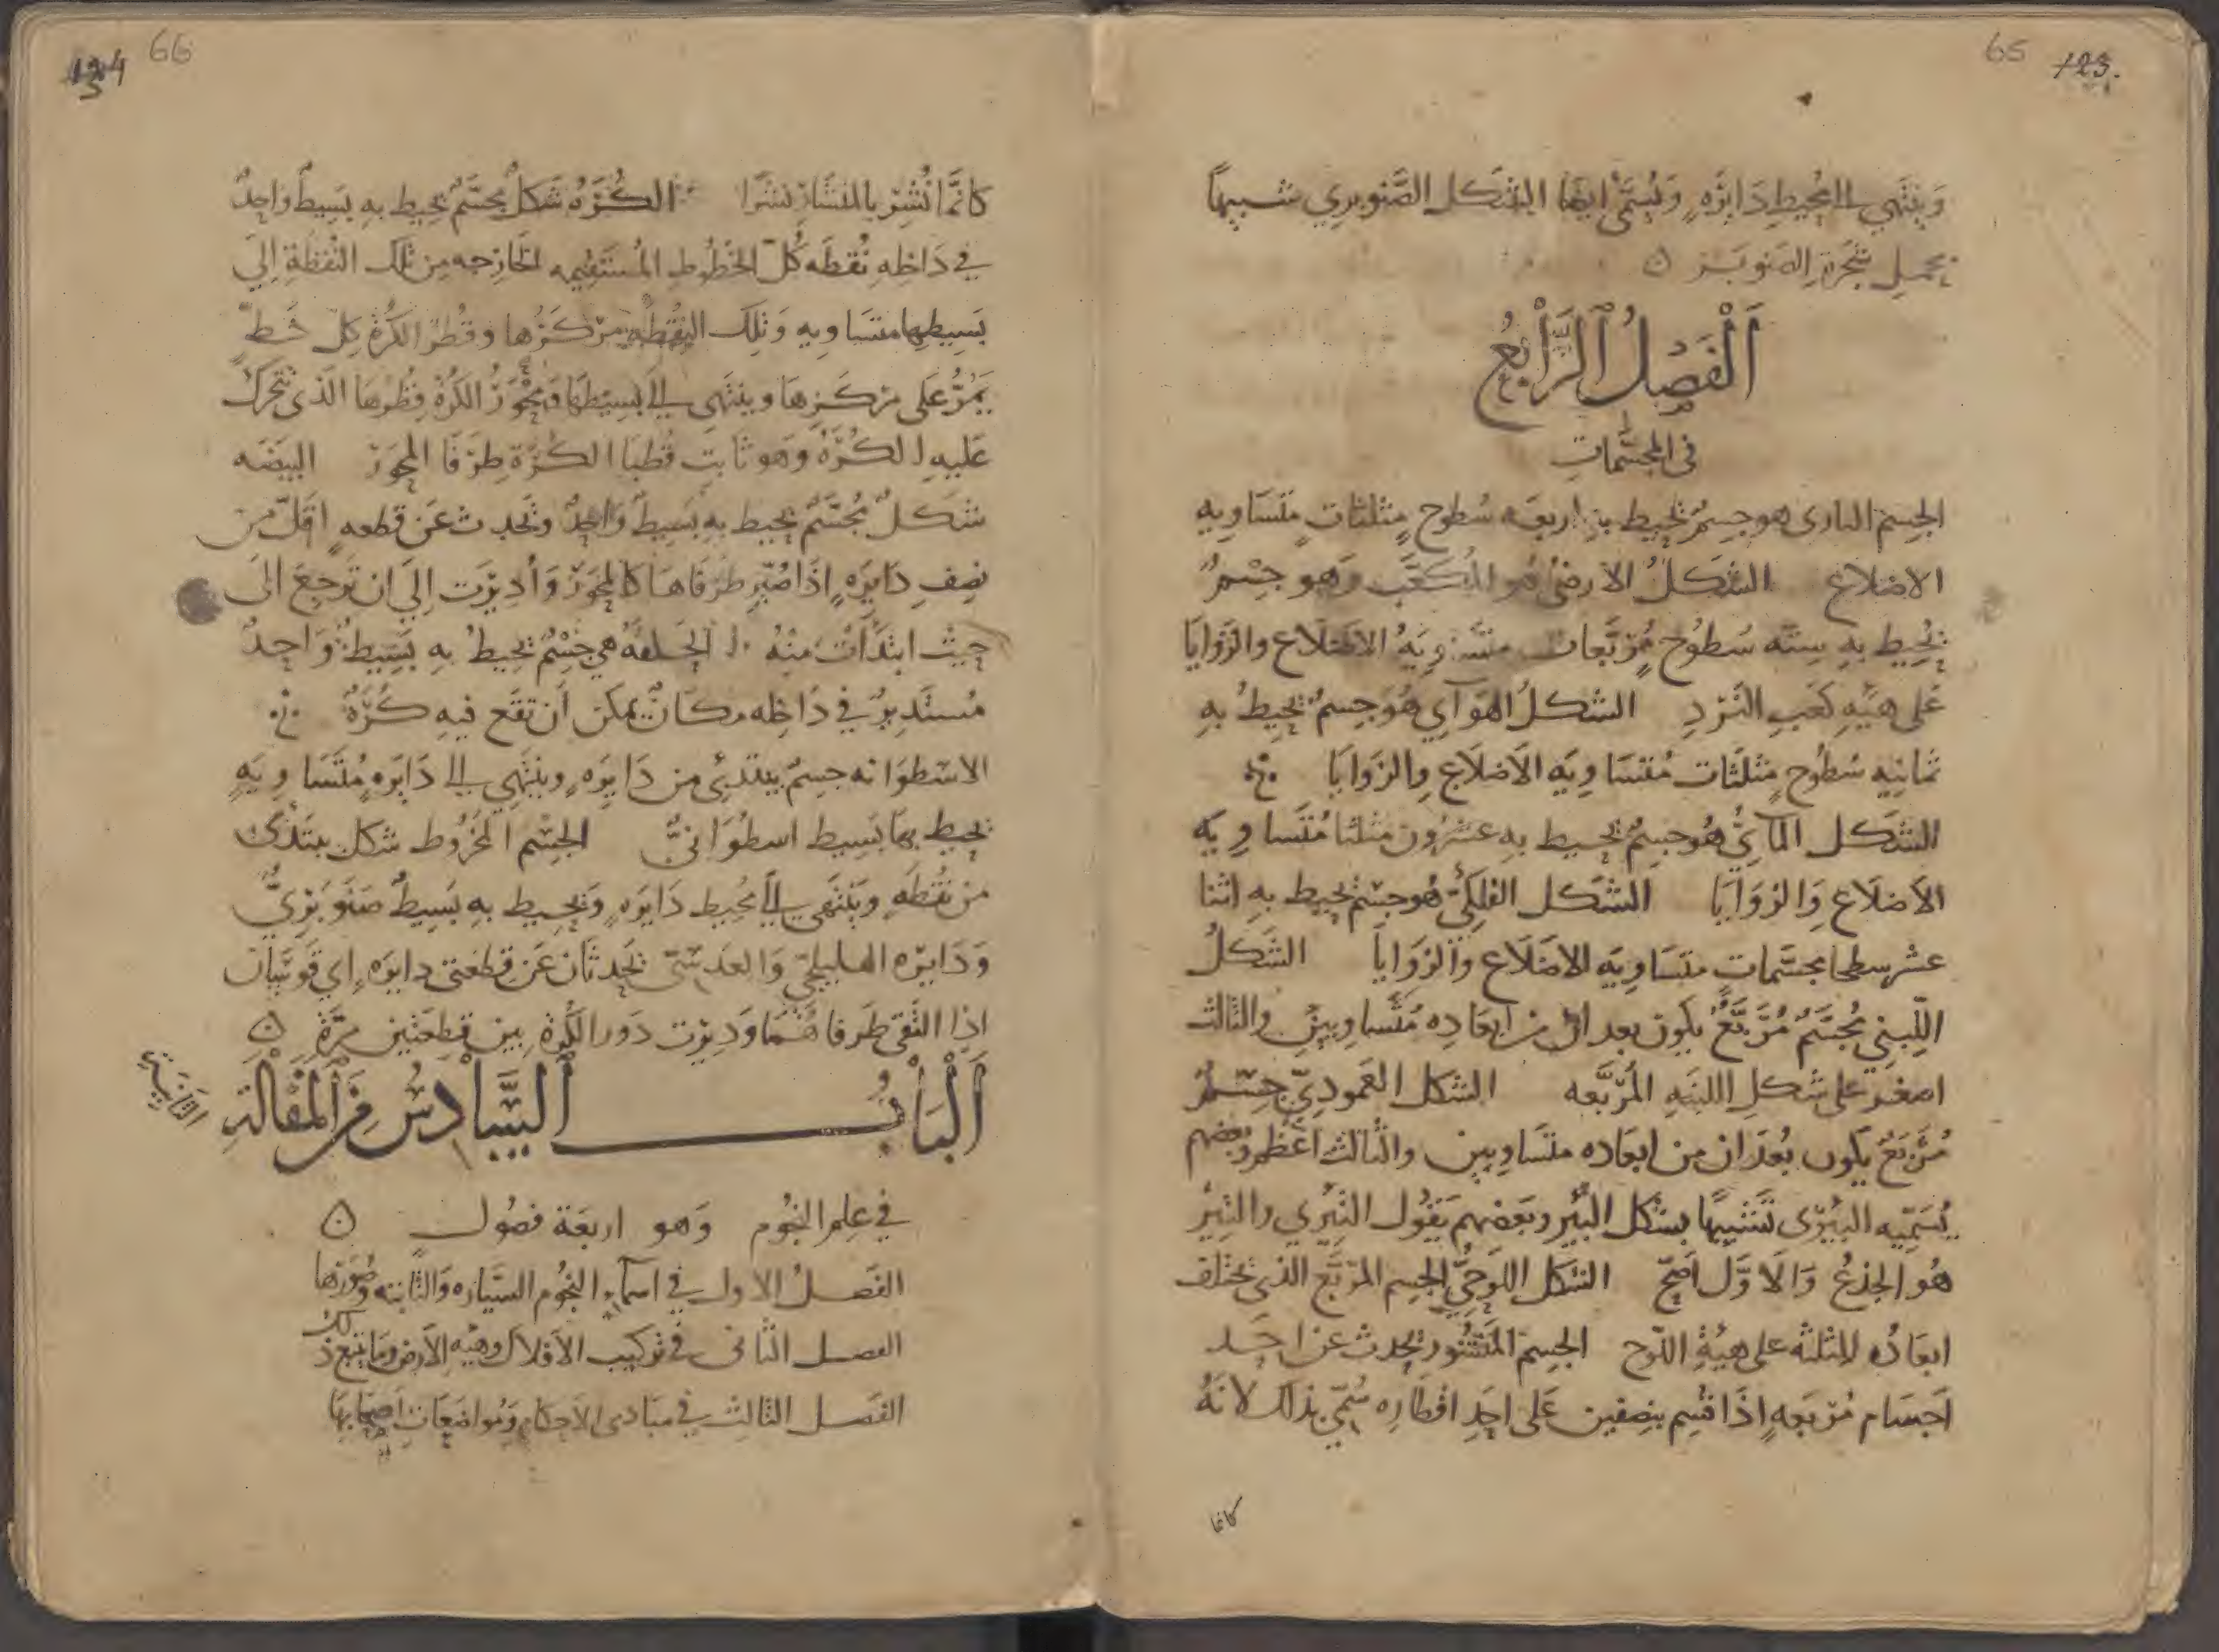 65 123.
وَينتَهي الى محُيطِ دَايرَهٍ وَيُسَمَّى ايضا الشكل الصَّنوبري شبيهاً
بحمل شجَرةِ الصَنوبَر ه
اَلْفَصْلُ الرَّابعُ
فى المجسَّماتِ
الجسِم النارى هو جسِمٌ يُحيط بهِ اربعَه سُطوحٍ مثلثاتٍ متسَاويه
الاضلاع الشكلُ الارضىُ هو المُكَعَّب وَهو جسْمٌ
يُحيط بهِ ستّه سُطوُحٍ مُرَبَّعات متسَاويَهُ الاضلاع والزَوايَا
عَلى هيئهِ كعَبِ النَرّدِ الشكلُ الهَوآي هُوَ جسِمٌ يُحِيطُ بهِ
ثمانيِه سُطُوحٍ مثلثَات مُتسَاويَه الاَضلاَع والزوايَا
الشكل المآئيُّ هُو جسِمٌ يحيط بهِ عشرُون مثلثا مُتَساويَه
الاَضلاَع وَالزوَايَا الشكل الفلكَيُّ هُو جسْم يحيط بهِ اثنا
عشر سطحا مجسَّماتٍ متسَاويَه الاضَلَاع والزوَاياَ الشَكلُ
اللّبنِي مُجسَّمٌ مُرَبَّعٌ يكون بعدان من ابعَاده مُتَساويين والثالث
اصغر على شكلِ اللبنَهِ المُربَّعه الشكل العَموديّ جسْمٌ
مُرَبَعٌ يكون بعُدَان من ابعَاده متسَاويين والثالث اعَظم وبعضهم
يُسَمّيه البيرّى تَشبيهًا بشكل البئر وبَعضهم يَقوُل التِيرى والتيرُ
هُو الجذعُ وَالاوَّل اَصَحّ الشكل اللَوحيُّ الجسِم المرّبَّع الذي تختلف
ابعَادُه الثلثه على هيَئةِ اللّوح الجسِم المَنشُور يحدث عن احَد
اَجسَام مُربَعهٍ اذَا قسُم بنصِفين عَلى احَدِ اقطاره سُمّي بذلك لانهُ
كانما
66 134
كانمَّا نُشِرَ بالمنشَار نَشرًا الكُرَهُ شَكلٌ مجسَّمٌ يحُيط بهِ بَسِيطٌ واحِدٌ
في دَاخلِهِ نُقطَه كُلّ الخطُوطِ المُستقيمه الخارجه من تلك النُقطة اِليَ
بَسِيطها متسَاويه وَتِلك النُقُطهُ مَركزُها وقطُرُ الكُرَةِ كلّ خَطٍّ
يَمُرُّ عَلى مَركَزِهَا وينتَهي الىَ بَسِيطهَا ومِحْوَرُ الكُرَةِ قطُرُهَا الَذى تتحَركُ
عَليهِ الكُرَهُ وَهو ثابِت قُطبَا الكُرَةِ طرَفَا المحِوَر البيضَه
شكلٌ مجُسَّمٌ يحيط بهِ بَسيطٌ وَاحِدٌ وتحَدث عَن قطعهٍ اقلّ من
نصِفِ دَايرَهٍ اذَا صُيّر طرَفَاهَا كالمحِوَر وَاُديرَت اِليَ ان تَرجعَ الىَ
حيثُ ابتَدَأتْ مِنْهُ الحَلقَهُ هي جسْمٌ يحُيطُ بهِ بَسِيطٌ وَاحِدٌ
مُستَدِيرٌ في دَاخلِه مكَانٌ يمكن اَن تقَع فيهِ كُرَهٌ
الاسْطوَانه جسِمٌ يبتدئ من دَايرَهٍ وينتهي الى دَايرَهٍ مُتسَاويَهٍ
يحيط بهَا بَسِيط اسطُوَانيٌّ الجسْم المخرُوط شكل يبتدئ
من نقُطَهٍ ويَنتَهي الىَ محُيط دَايرَهٍ وَيحُيط بهِ بَسيطٌ صَنَوبَرِيٌّ
وَدَايرَه الهليلجيّ وَالعَدسَيّ يحَدثَان عَن قطعَتى دايرَهٍ اي قَوسَيَان
اذا التَقى طَرفاهُمَا وَديرَت دَور الكُرةِ بين قطِعَتين مَرَّةً ه
اَلْبَابُ السَّادِسُ مِنَ الْمَقَالَةِ
الثَانِيَةِ
في عِلم النجُوم وَهو اربعَة فصُول ه
الفصَلُ الاول في اسمآء النجُوم السَيّاره وَالثابته وصُوَرها
الفصل الثانى في تركيب الاَفلاك وهيئه الاَرض وما يتبع ذلك
الفصَل الثالث في مبَادى الاَحكام وَمُواضَعَاتِ اصحابهَا